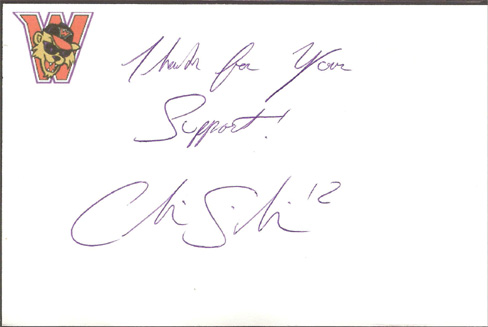 W
Thanks for Your
Support!
12